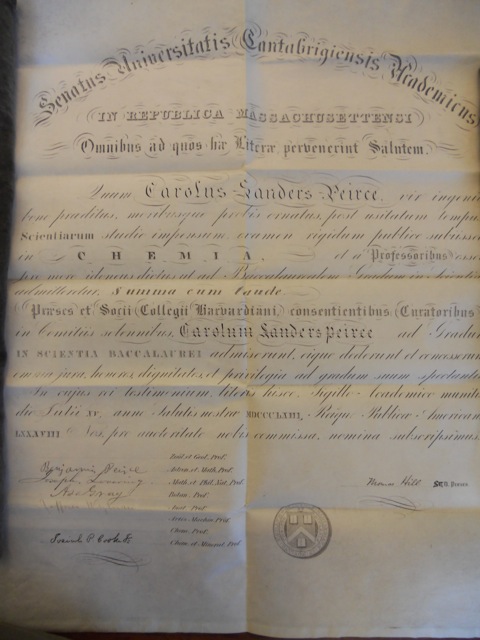 Senatus Universitatis Cantabrigiensis Academicus
IN REPUBLICA MASSACHUSETTENSI
Omnibus ad quos hæ Literæ pervenerint Salutem.
Quum Carolus Sanders Peirce, vir ingenio
bene præditus, moribusque probis ornatus, post usitatum tempus
Scientiarum studio impensum, examen rigidum publice subiisset
in CHEMIA, et a Professoribus
pro more idoneus dictus ut ad Baccalaureatum Gradum
admitteretur, Summa cum Laude.
Præses et Socii Collegii Harvardiani, consentientibus Curatoribus
in Comitiis solennibus, Carolum Sanders Peirce ad Gradum
IN SCIENTIA BACCALAUREI admiserunt, eique dederunt et concesserunt
omnia jura, honores, dignitates, et privilegia ad gradum suum spectantia.
In cujus rei testimonium, literis hisce, Sigillo Academico munitis
die Julii XV, anno Salutis nostræ MDCCCLXIII, Reique Publicæ Americanæ
LXXXVIII Nos, pro auctoritate nobis commissa, nomina subscripsimus.
Zool. et Geol. Prof.
Benjamin Peirce Astron. et Math. Prof.
Joseph Lovering Math. et Phil. Nat. Prof.
Asa Gray Botan. Prof.
Anat. Prof.
Prof.
Chem. Prof.
Josiah P. Cooke Jr. Chem. et Mineral. Prof.
Thomas Hill S.T.D. Præses